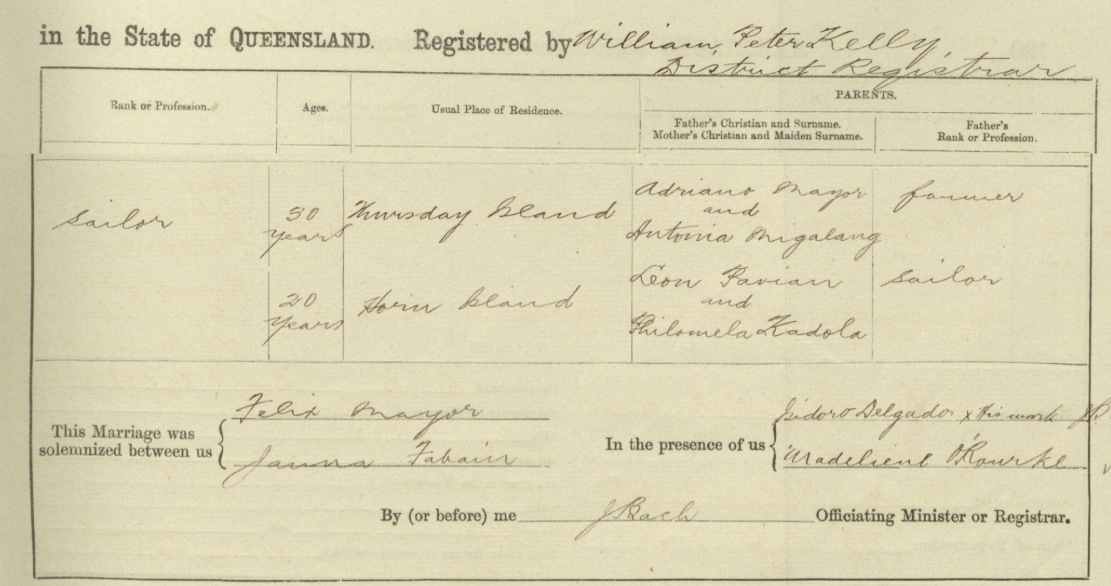 in the State of QUEENSLAND. Registered by William Peter Kelly
District Registrar
Rank or Profession. Ages. Usual Place of Residence. PARENTS.
Father's Christian and Surname. Father's
Mother's Christian and Maiden Surname. Rank or Profession.
Sailor 30 Years Thursday Island Adriano Mayor farmer
and
Antonia Migalang
20 Years Horn Island Leon Favian Sailor
and
Philomela Kadola
This Marriage was solemnized between us Felix Mayor In the presence of us Isidoro Delgado x His mark
Fabain Madelient O'Rourke
By (or before) me Officiating Minister or Registrar.